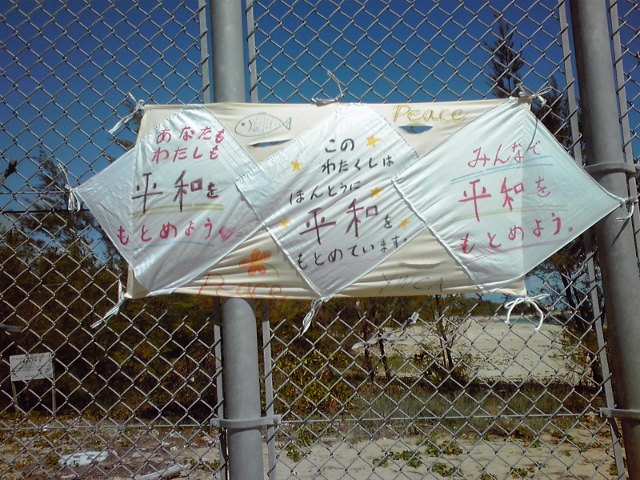 Peace
あなたも
わたしも
平和を
もとめよう
この
わたくしは
ほんとうに
平和を
もとめています。
みんなで
平和を
もとめよう。
Peace
YWCA